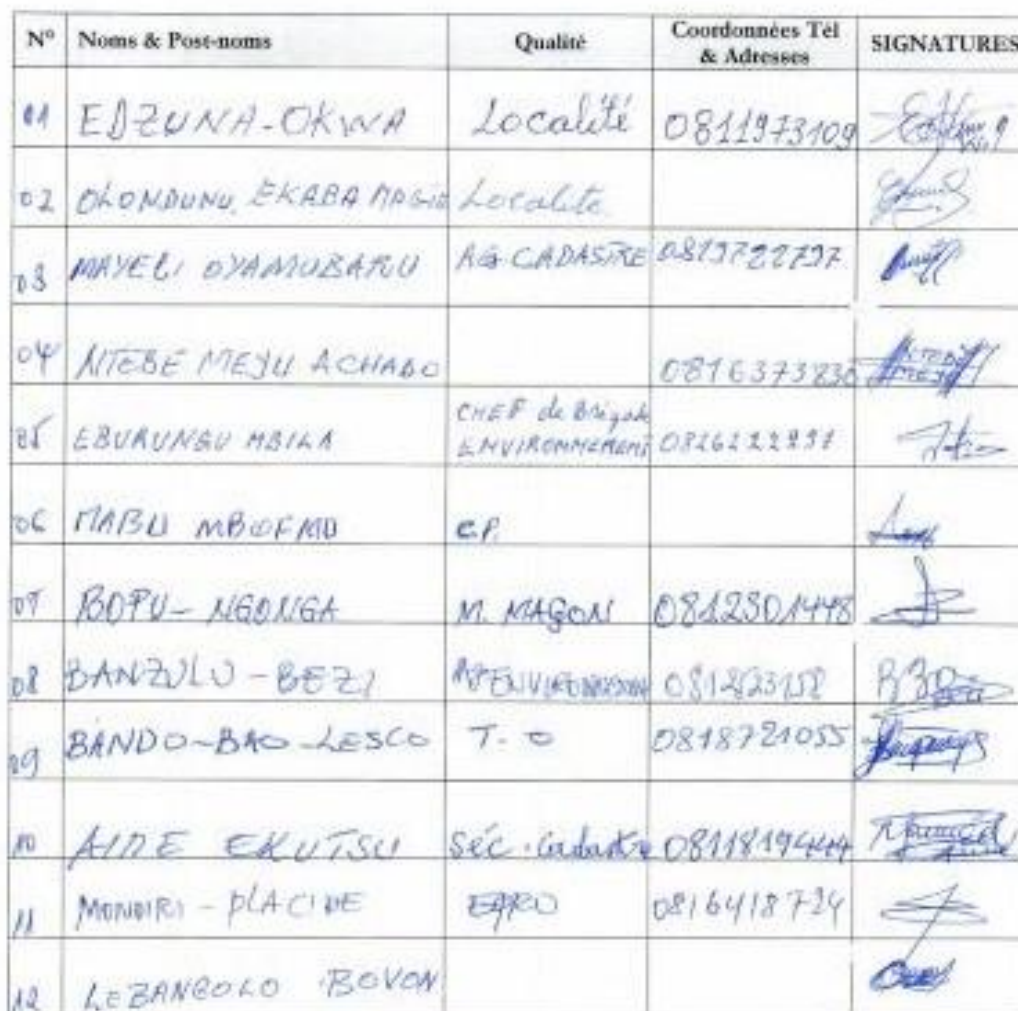 N° Noms & Post-noms Qualité Coordonnées Tél & Adresses SIGNATURES
01 EDZUNA-OKWA Localité 0811973109
02 OLONDUNU EKABA Localite
03 MAYELI OYAMUBARU AG.CADASTRE 0819722797
04 NTEBE MEJU ACHADO 0816373830 NTEBE MEJU
05 EBURUNGU MBILA CHEF de Brigade ENVIRONNEMENT
06 MABU C.P.
07 BOPU-NGONGA M. MAGON 0812301448
08 BANZULU-BEZI
09 BANDO-BAO-LESCO T.O 0818721055
10 AIME EKUTSU Séc. Cadastre 0811819444
11 MONDIRI-PLACIDE 0816418724
12 LEBANGOLO BOVON